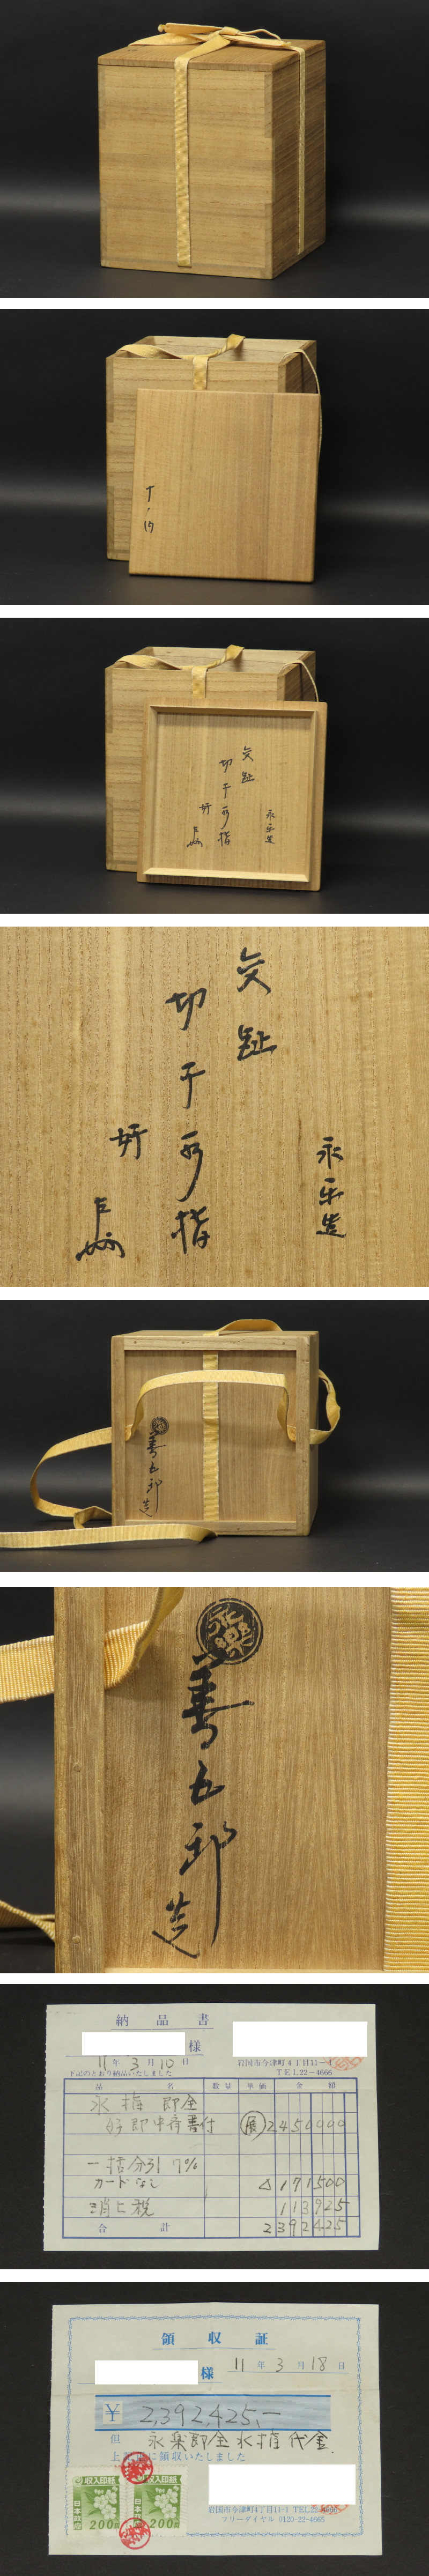 十ノ内
交趾
切干水指
好
永楽造
交趾
切干水指
好
永楽造
善五郎
造
善五郎
造
納品書
様
11年3月10日
下記のとおり納品いたしました
岩国市今津町4丁目11-1
TEL22-4666
品名 数量 単価 金額
水指 即全
好 即中斎書付 展 2450000
一括分引 7%
カードなし △171500
消費税 113925
合計 2392425
領収証
様 11年3月18日
¥2,392,425.-
但 永楽即全水指代金
上記正に領収いたしました
収入印紙 収入印紙
日本政府 日本政府
200 200
岩国市今津町4丁目11-1 TEL22-4665
フリーダイヤル 0120-22-4665